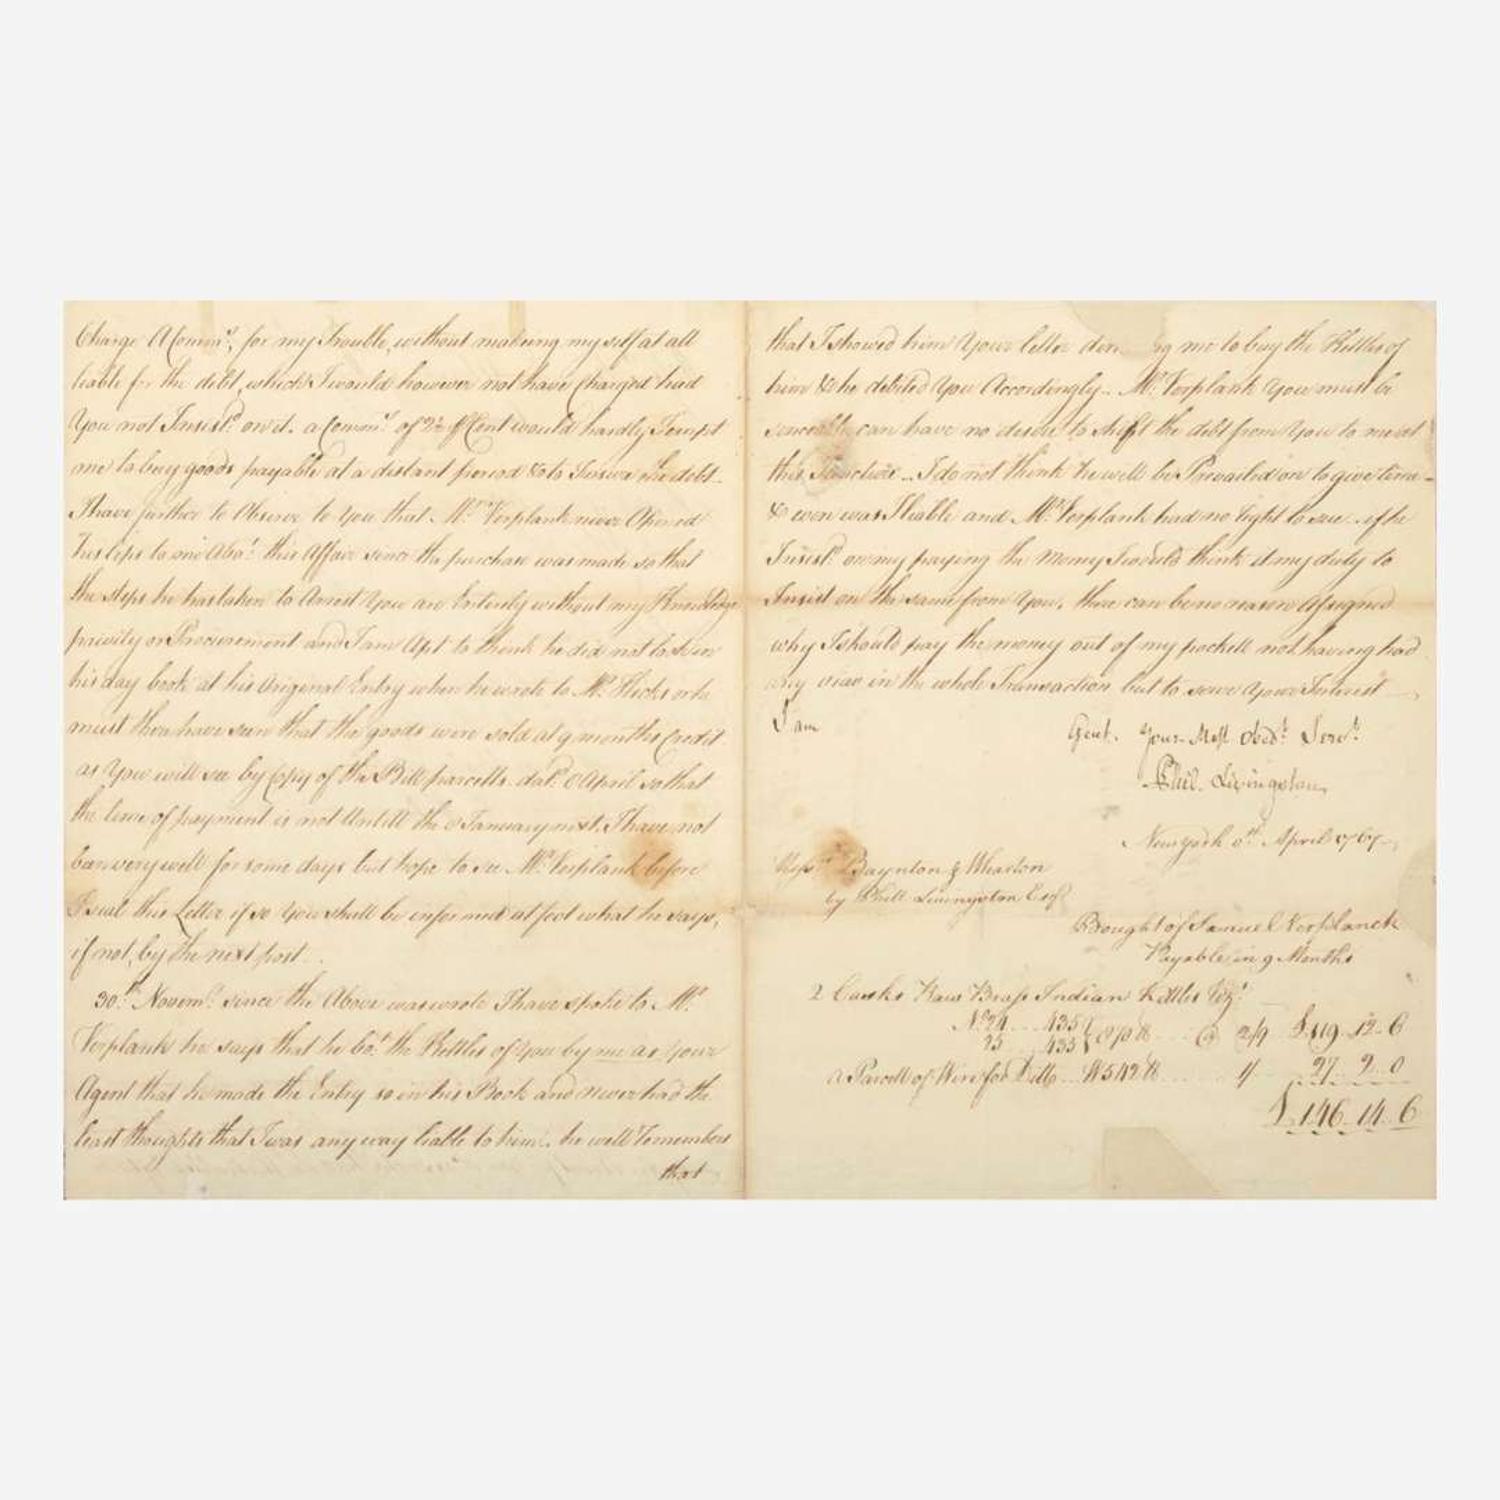 Charge A Commn., for my trouble, without making my self at all
liable for the debt, which I would however not have Charged had
You not Insistd. on it. a Commn. of 2½ ⅌ Cent would hardly Tempt
me to buy goods payable at a distant period & to Insure the debt.
I have further to Observe to You that Mr. Verplank never Opened
his lips to me Abot. this Affair since the purchase was made so that
the steps he has taken to Arrest You are Entirely without my Knowledge
privity or Procurement and I am Apt to think he did not look in
his day book at his Original Entry when he wrote to Mr. Hicks or he
must then have seen that the goods were sold at 9 months Credit
as You will see by Copy of the Bill parcells. dat. 8 April so that
the time of payment is not Untill the 8 January next. I have not
been very well for some days but hope to see Mr. Verplank before
I seal this Letter if so You shall be informed at foot what he says,
if not, by the next post.
30th. Novemr. since the Above was wrote I have spoke to Mr.
Verplank he says that he bot. the Kettles of You by me as Your
Agent that he made the Entry so in his Book and never had the
least thoughts that I was any way liable to him. he well remembers
that
that I showed him Your letter me to buy the Kettles of
him & he debited You Accordingly. Mr. Verplank You must be
sencable can have no desire to shift the debt from You to me at
this Juncture. I do not think he will be Prevailed on to give time
& even was I liable and Mr. Verplank had no right to sue. if he
Insistd. on my paying the Money I would think it my duty to
Insist on the same from You, there can be no reason Assigned
why I should pay the money out of my pockett not having had
any view in the whole Transaction but to serve Your Interest
I am
Gent. Your Most Obedt. Servt.
Phil. Livingston
New york 8th. April 1767
Messrs. Baynton & Wharton
by Phill Livingston Esqr
Bought of Samuel Verplanck
Payable in 9 Months
2 Casks Raw Brass Indian Kettles Vizt.
No. 24 435
25 435 870 ℔ @ 2/9 £119..12..6
a Parcell of Wire for Ditto W 542 ℔ 1/ 27..2..0
£146..14..6